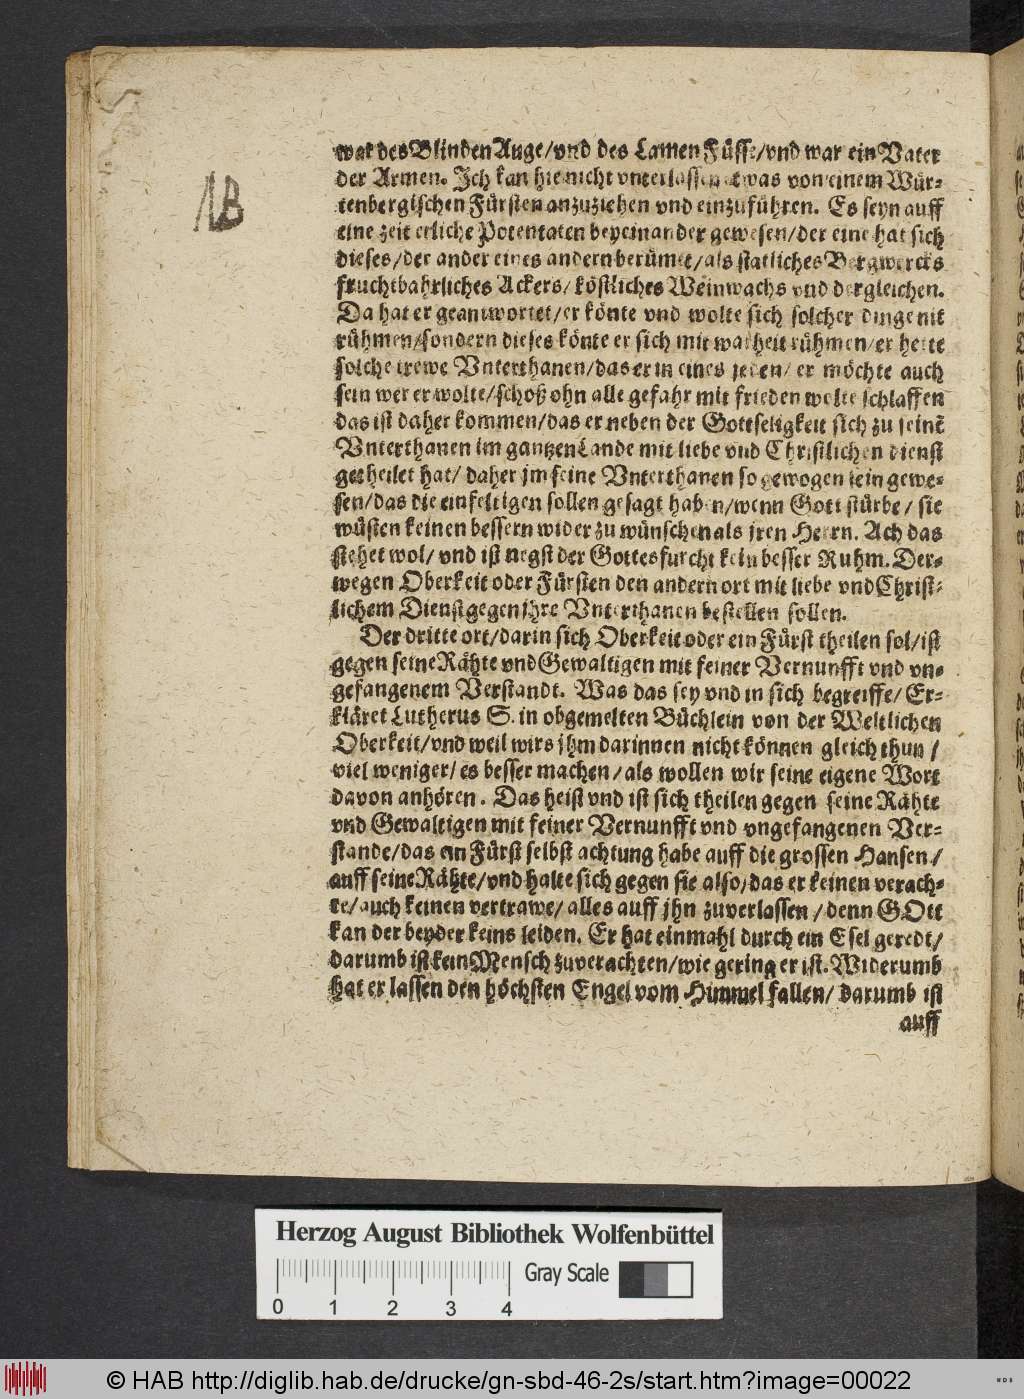 NB
war des Blinden Auge/vnd des Lamen Füsse/vnd war ein Vater
der Armen. Jch kan hie nicht vnterlassen etwas von einem Wür-
tenbergischen Fürsten anzuziehen vnd einzuführen. Es seyn auff
eine zeit etliche Potentaten beyeinander gewesen/der eine hat sich
dieses/der ander eines andern berümet/als statliches Bergwercks
fruchtbahrliches Ackers/ köstliches Weinwachs vnd dergleichen.
Da hat er geantwortet/er könte vnd wolte sich solcher dinge nit
rühmen/sondern dieses könte er sich mit warheit rühmen/er hette
solche trewe Vnterthanen/das er in eines jeden/ er möchte auch
sein wer er wolte/schoß ohn alle gefahr mit frieden wolte schlaffen
das ist daher kommen/das er neben der Gottseligkeit sich zu seinẽ
Vnterthanen im gantzen Lande mit liebe vnd Christlichen dienst
getheilet hat/ daher jm seine Vnterthanen so gewogen sein gewe-
sen/das die einfeltigen sollen gesagt haben/wenn Gott stürbe/ sie
wüsten keinen bessern wider zu wünschen als jren Herrn. Ach das
stehet wol/ vnd ist negst der Gottesfurcht kein besser Ruhm. Der-
wegen Oberkeit oder Fürsten den andern ort mit liebe vnd Christ-
lichem Dienst gegen jhre Vnterthanen bestellen sollen.
Der dritte ort/darin sich Oberkeit oder ein Fürst theilen sol/ist
gegen seine Rähte vnd Gewaltigen mit feiner Vernunfft vnd vn-
gefangenem Verstandt. Was das sey vnd in sich begreiffe/ Er-
kläret Lutherus S. in obgemelten Büchlein von der Weltlichen
Oberkeit/vnd weil wirs jhm darinnen nicht können gleich thun/
viel weniger/ es besser machen/als wollen wir seine eigene Wort
davon anhören. Das heist vnd ist sich theilen gegen seine Rähte
vnd Gewaltigen mit feiner Vernunfft vnd vngefangenen Ver-
stande/das ein Fürst selbst achtung habe auff die grossen Hansen/
auff seine Rähte/vnd halte sich gegen sie also/das er keinen verach-
te/auch keinen vertrawe/ alles auff jhn zuverlassen/denn GOtt
kan der beyder keins leiden. Er hat einmahl durch ein Esel geredt/
darumb ist kein Mensch zuverachten/wie gering er ist. Widerumb
hat er lassen den höchsten Engel vom Himmel fallen/ darumb ist
auff
Herzog August Bibliothek Wolfenbüttel
Gray Scale
0 1 2 3 4
© HAB http://diglib.hab.de/drucke/gn-sbd-46-2s/start.htm?image=00022